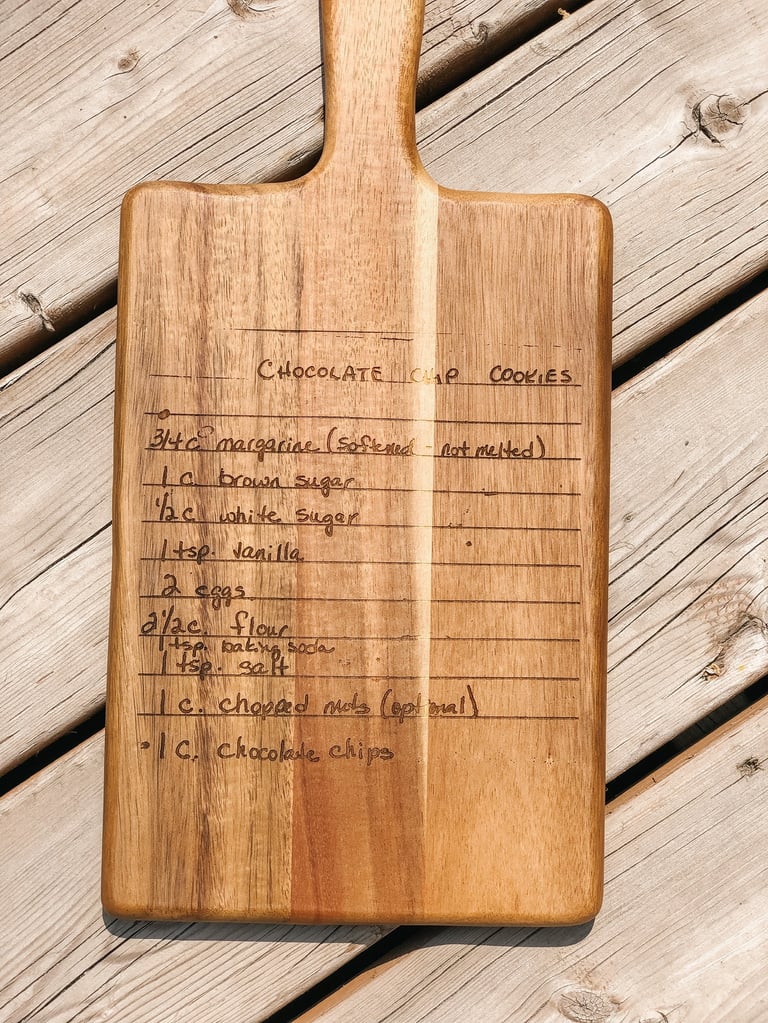 CHOCOLATE CHIP COOKIES
3/4 c. margarine (softened - not melted)
1 c. brown sugar
1/2 c. white sugar
1 tsp. vanilla
2 eggs
2 1/2 c. flour
1 tsp. baking soda
1 tsp. salt
1 c. chopped nuts (optional)
1 c. chocolate chips